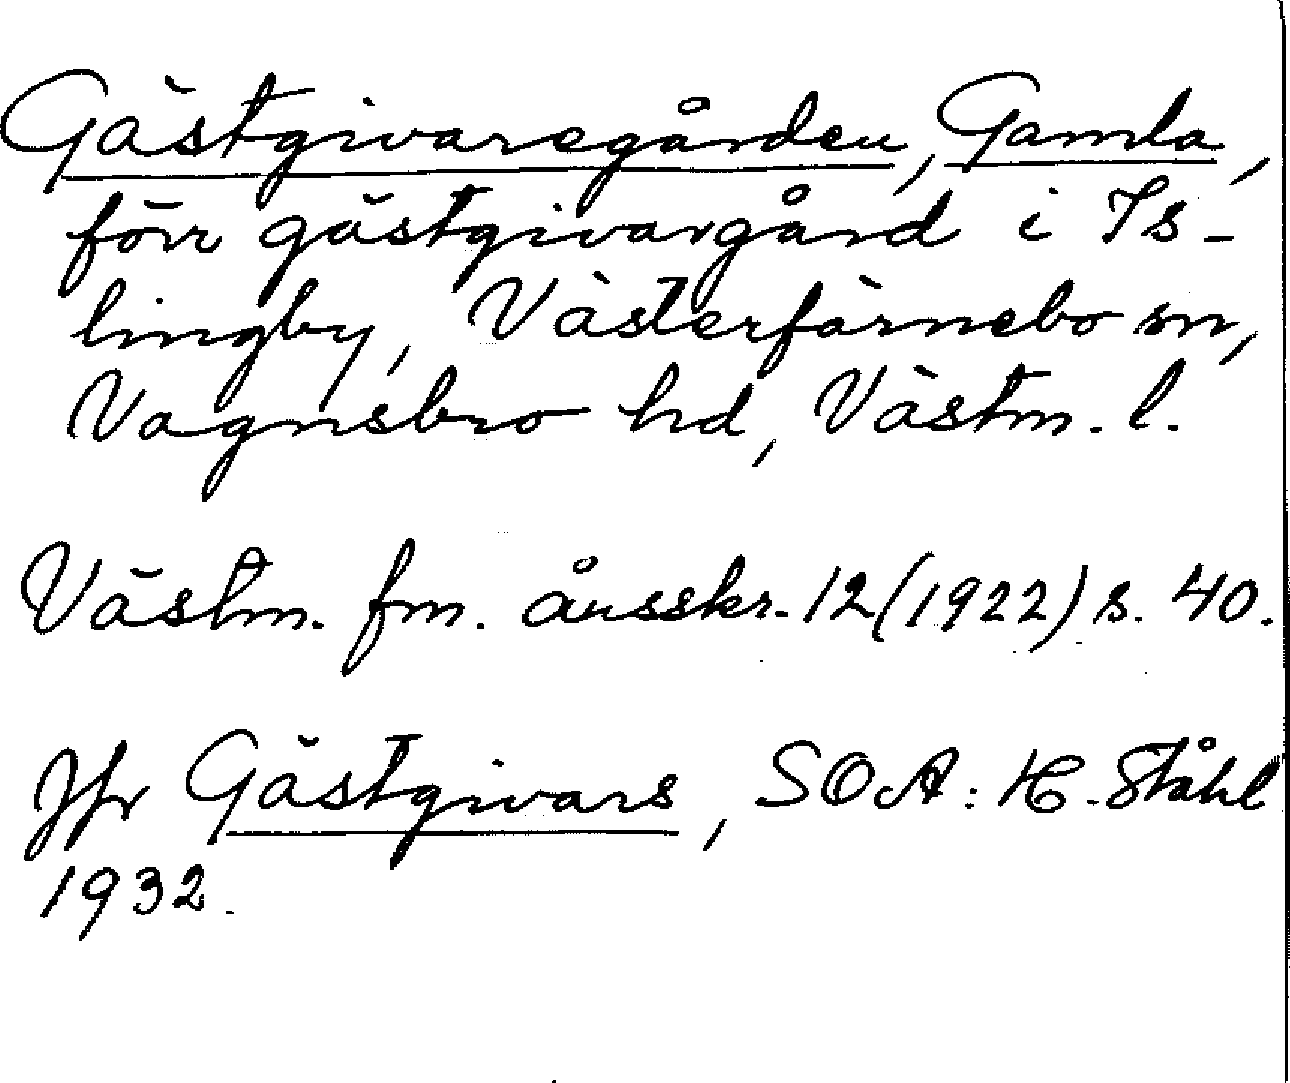 Gästgivaregården, Gamla,
förr gästgivargård i Is-
lingby, Västerfärnebo sn,
Vagnsbro hd, Västm. l.
Västm. fm. årsskr. 12 (1922) s. 40.
Jfr Gästgivars, SOA: H. Ståhl
1932.